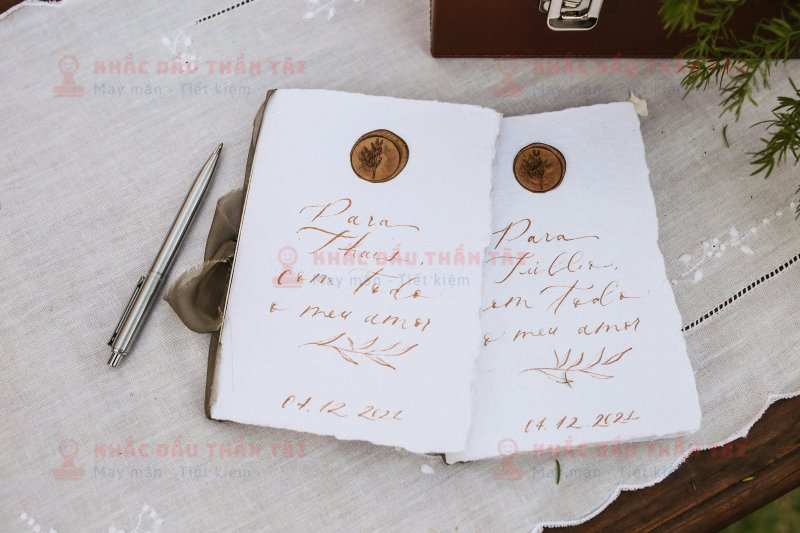 KHẮC DẤU THẦN TÀI
May mắn - Tiết kiệm
KHẮC DẤU THẦN TÀI
May mắn - Tiết kiệm
Para
Thaís,
com todo
o meu amor
04.12.2021
Para
Túllio,
com todo
o meu amor
04.12.2021
KHẮC DẤU THẦN TÀI
May mắn - Tiết kiệm
KHẮC DẤU THẦN TÀI
May mắn - Tiết kiệm
KHẮC DẤU THẦN TÀI
May mắn - Tiết kiệm